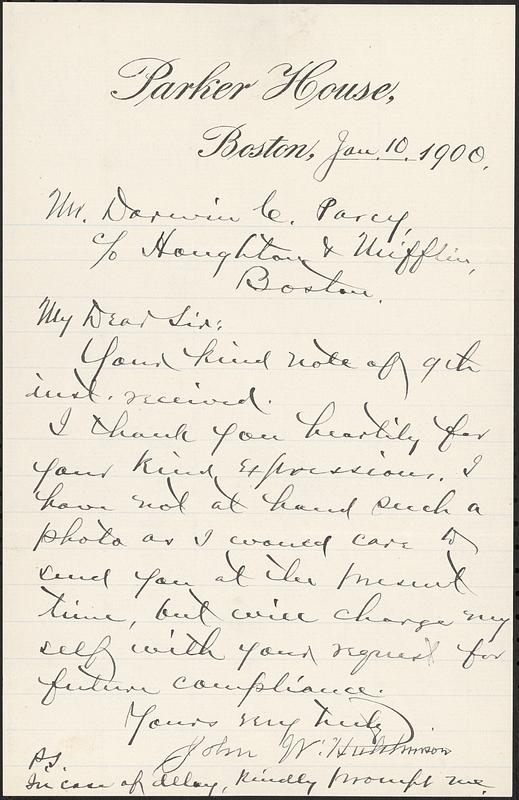 Parker House,
Boston, Jan. 10. 1900.
Mr. Darwin C. Parcy,
c/o Houghton & Mifflin,
Boston.
My Dear Sir:
Your kind note of 9th
inst. received.
I thank you heartily for
your kind expressions. I
have not at hand such a
photo as I would care to
send you at the present
time, but will charge my
self with your request for
future compliance.
Yours very truly
John W. Hutchinson
P.S.
In case of delay, kindly prompt me.